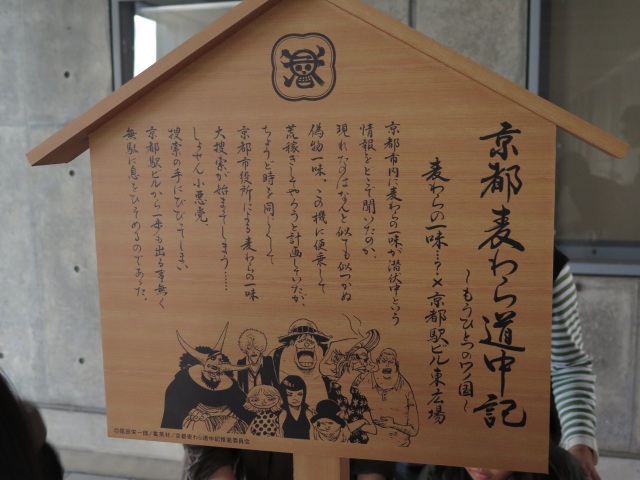 京都麦わら道中記
～もうひとつのワノ国～
麦わらの一味…?×京都駅ビル東広場
京都市内に麦わらの一味が潜伏中という
情報をどこで聞いたのか、
現れたのはなんと似ても似つかぬ
偽物一味。この機に便乗して
荒稼ぎしてやろうと計画していたが、
ちょうど時を同じくして
京都市役所による麦わらの一味
大捜索が始まってしまう……
しょせん小悪党。
捜索の手にびびってしまい
京都駅ビルから一歩も出る事無く
無駄に息をひそめるのであった。
©尾田栄一郎/集英社/京都麦わら道中記推進委員会